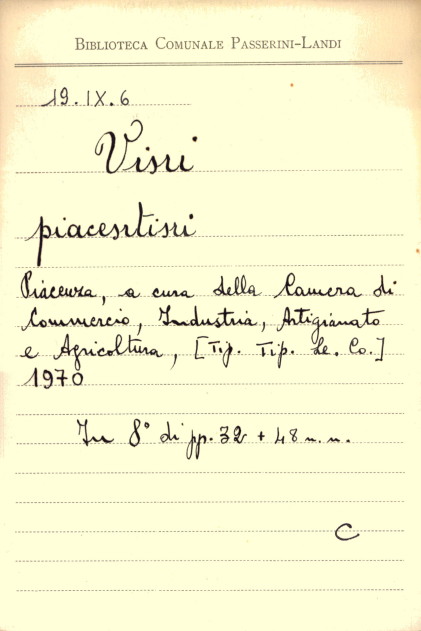 BIBLIOTECA COMUNALE PASSERINI-LANDI
19.IX.6
Vini
piacentini
Piacenza, a cura della Camera di
Commercio, Industria, Artigianato
e Agricoltura, [Tip. Tip. Le. Co.]
1970
In 8° di pp. 32 + 48 n. n.
C